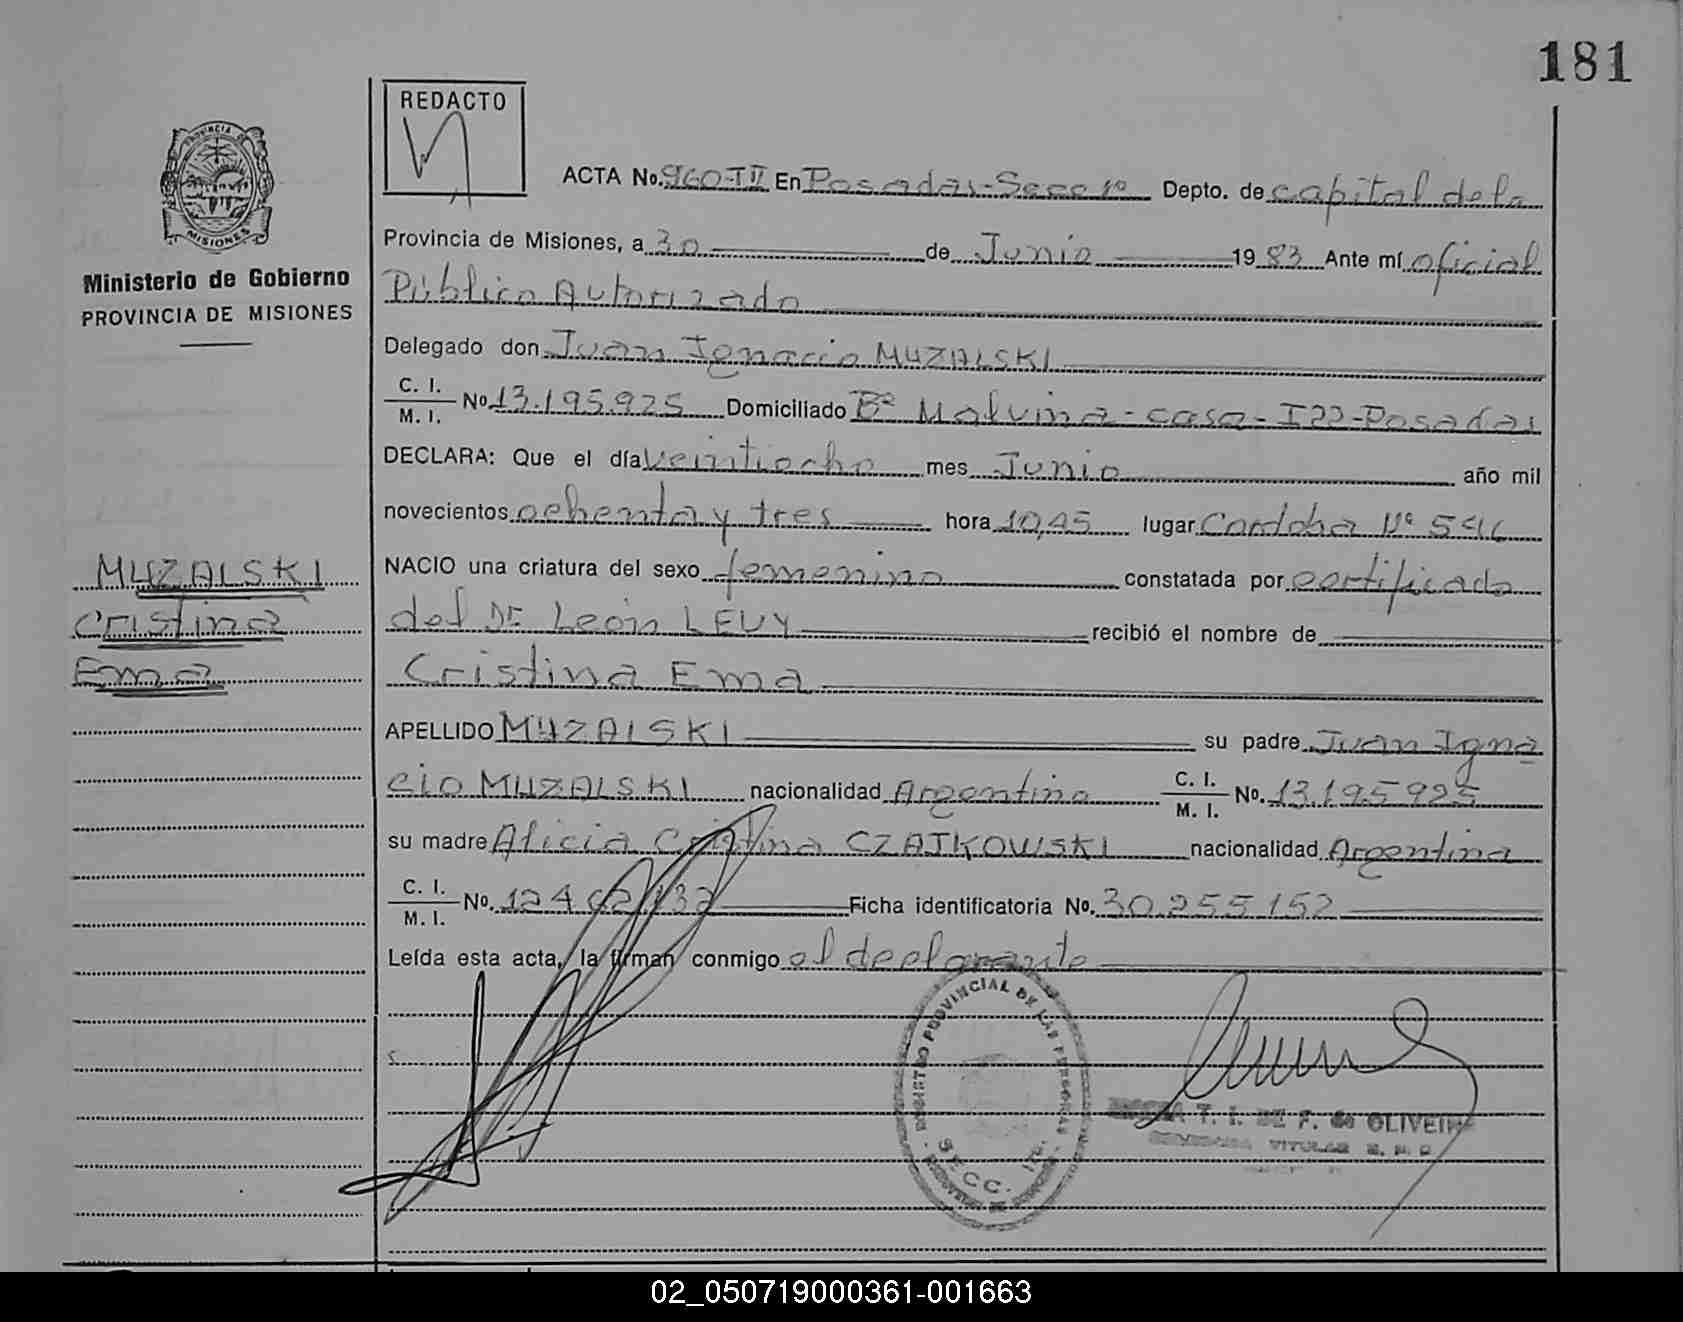 181
REDACTO
PROVINCIA DE
MISIONES
Ministerio de Gobierno
PROVINCIA DE MISIONES
ACTA No. 960-TII En Posadas-Secc 1º Depto. de capital de la
Provincia de Misiones, a 30 de Junio 1983 Ante mí oficial
Público Autorizado
Delegado don Juan Ignacio MUZALSKI
C. I. M. I. No 13.195.925 Domiciliado Bº Malvina - casa - 122 - Posadas
DECLARA: Que el día veintiocho mes Junio año mil
novecientos ochenta y tres hora 10,45 lugar Cordoba Nº
NACIO una criatura del sexo femenino constatada por certificado
del Dr León LEVY recibió el nombre de
Cristina Ema
APELLIDO MUZALSKI su padre Juan Igna
cio MUZALSKI nacionalidad Argentina C. I. M. I. No. 13.195925
su madre Alicia Cristina CZAJKOWSKI nacionalidad Argentina
C. I. M. I. No. Ficha identificatoria No. 30.255.152
Leída esta acta, la firman conmigo el declarante
MUZALSKI
Cristina
Ema
REGISTRO PROVINCIAL DE LAS PERSONAS
SECC. 1ra.
T. I. DE F. de OLIVEIRA
TITULAR
02_050719000361-001663